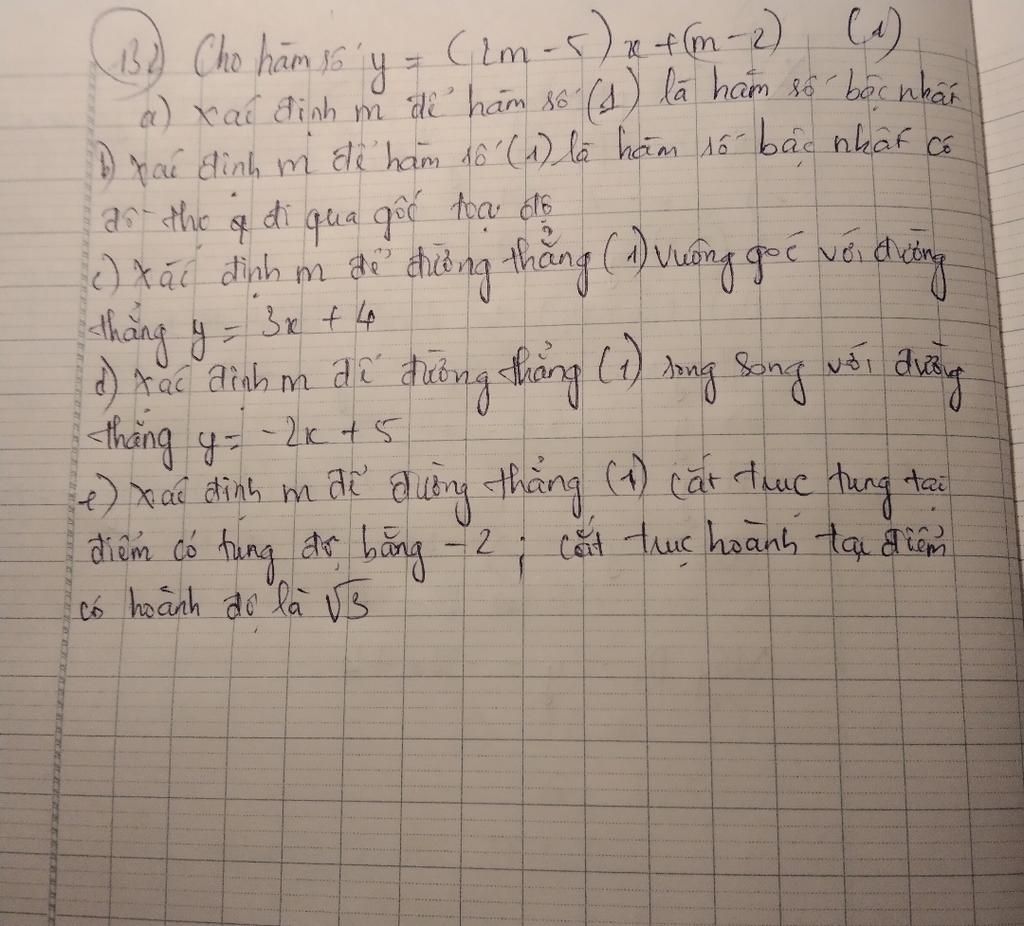 B2) Cho hàm số y = (2m - 5)x + (m - 2) (1)
a) Xác định m để hàm số (1) là hàm số bậc nhất
b) Xác định m để hàm số (1) là hàm số bậc nhất có
đồ thị đi qua gốc toạ độ
c) Xác định m để đường thẳng (1) vuông góc với đường
thẳng y = 3x + 4
d) Xác định m để đường thẳng (1) song song với đường
thẳng y = -2x + 5
e) Xác định m để đường thẳng (1) cắt trục tung tại
điểm có tung độ bằng -2 ; cắt trục hoành tại điểm
có hoành độ là √3